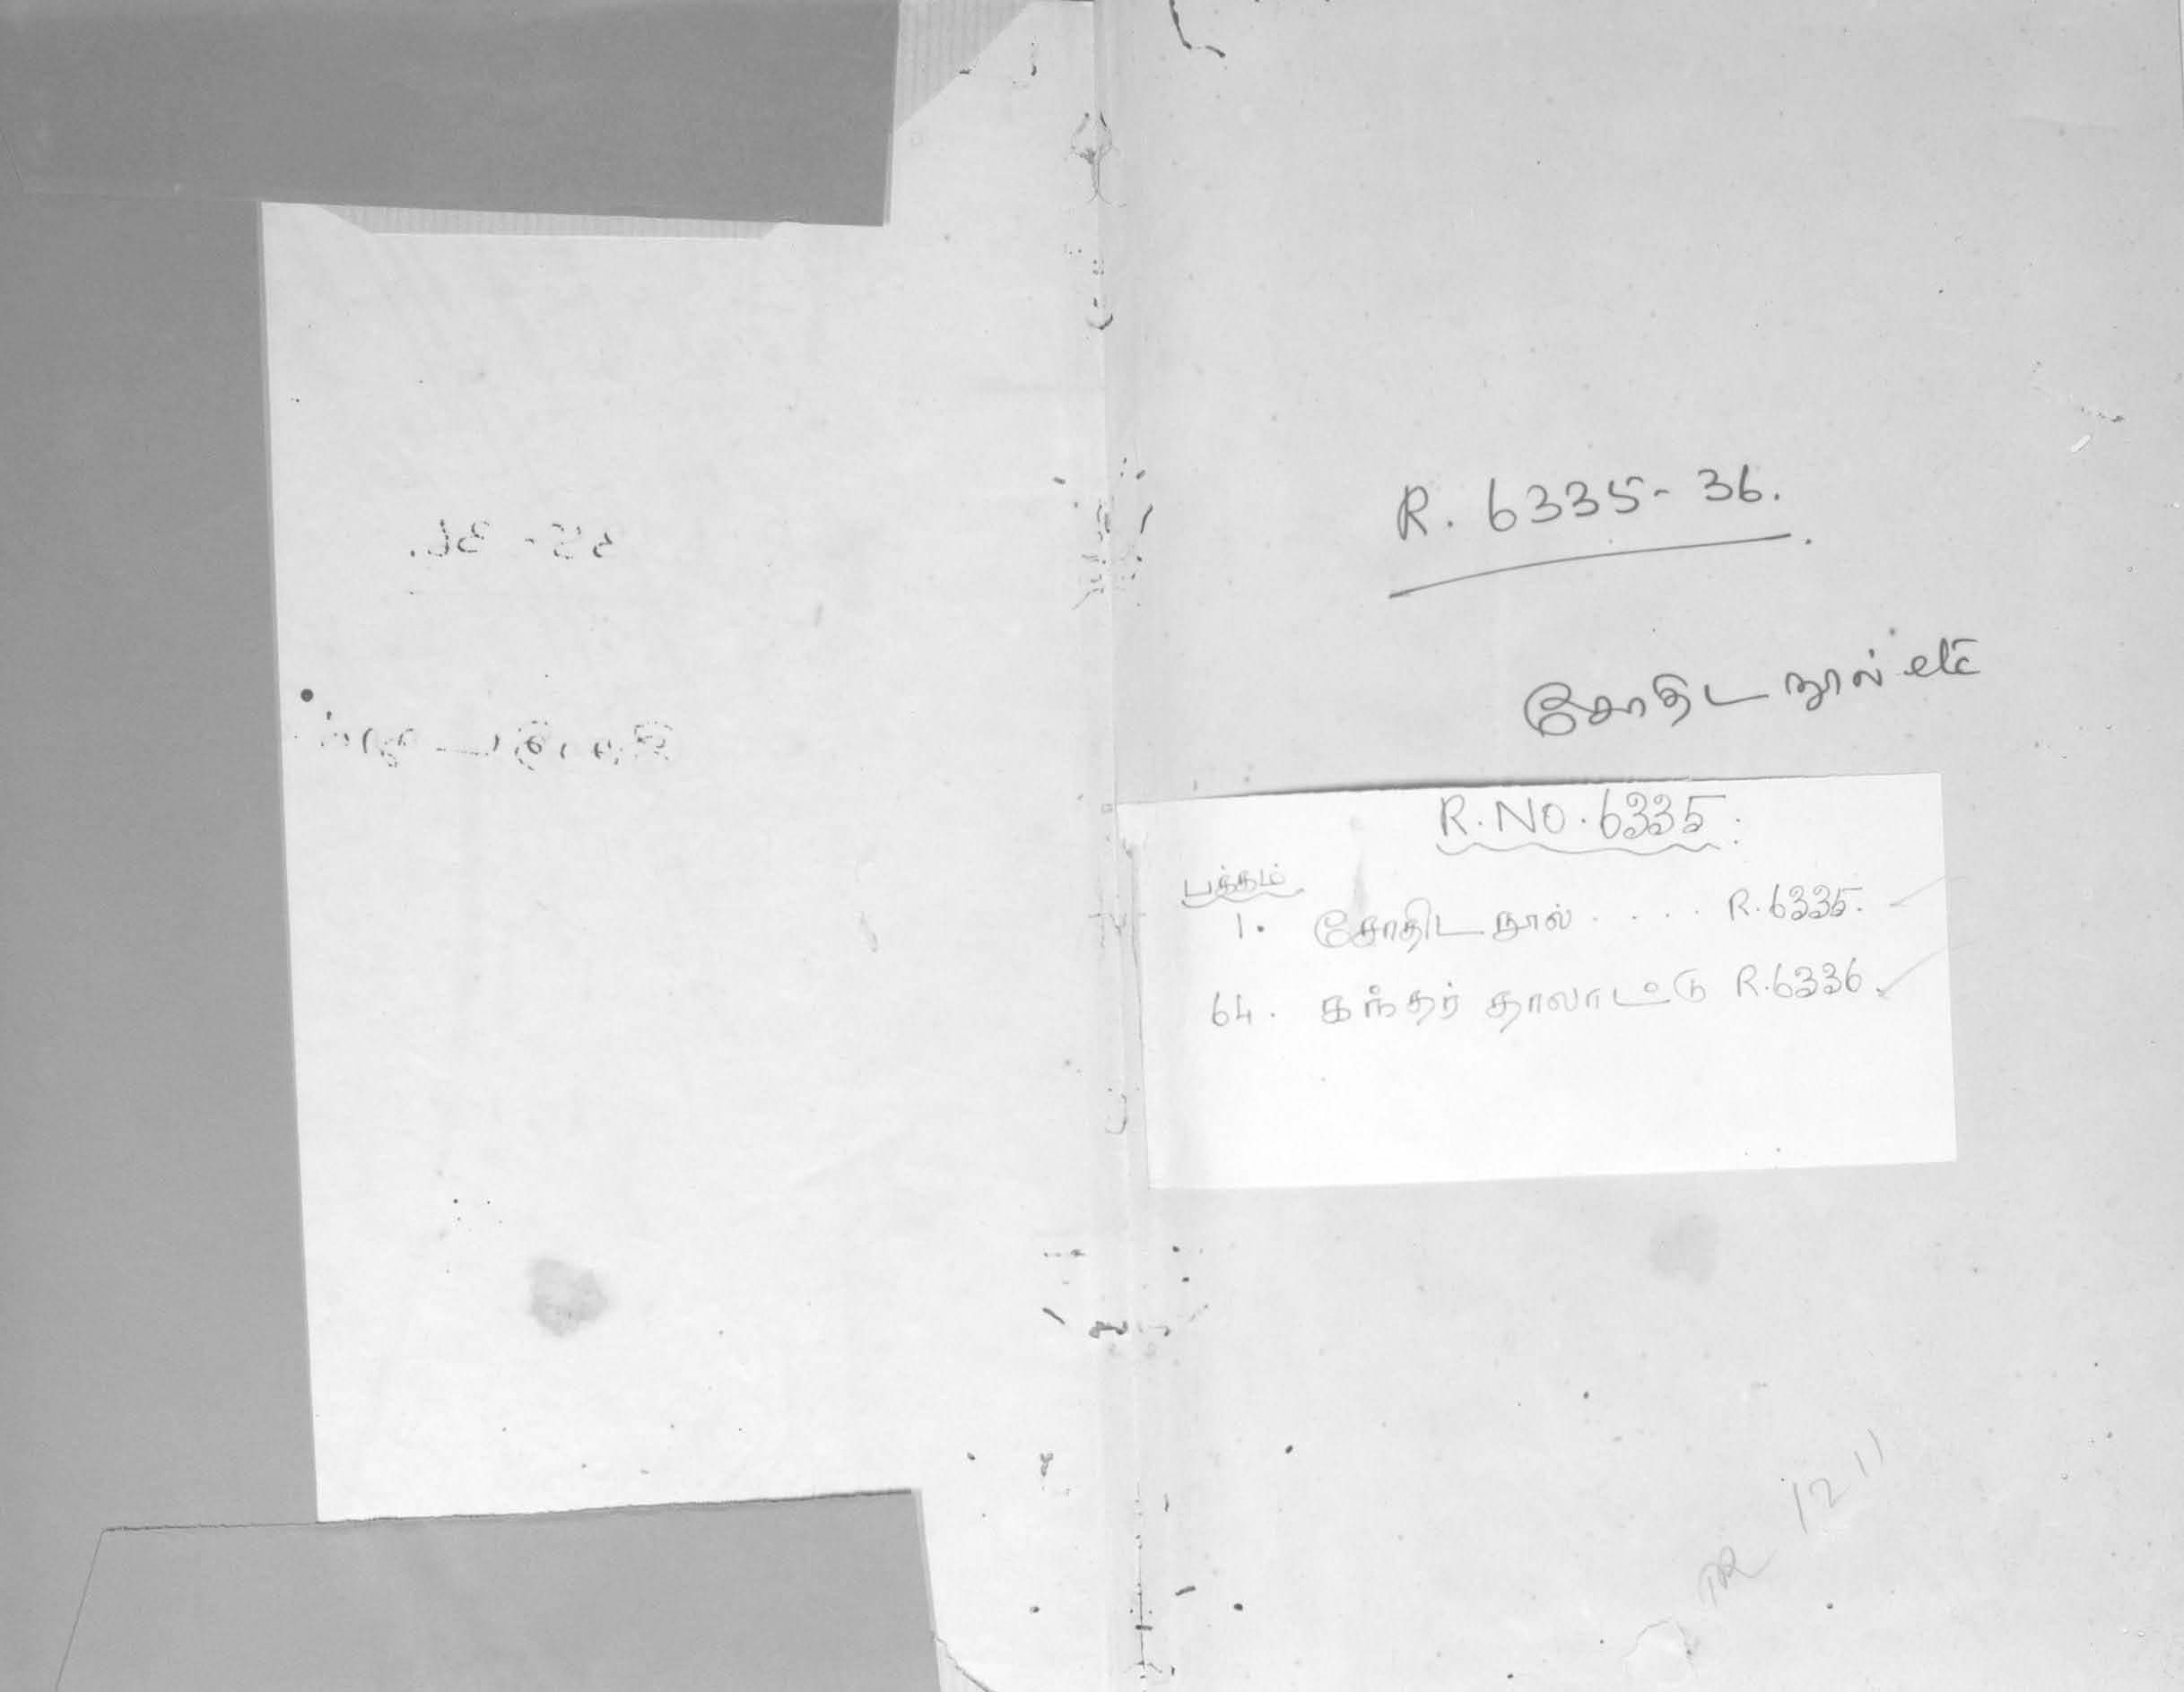 R. 6335-36.
சோதிட நூல் etc
R.NO.6335.
பத்தம்
1. சோதிட நூல் .... R.6335.
64. கந்தர் தாலாட்டு R.6336
1211